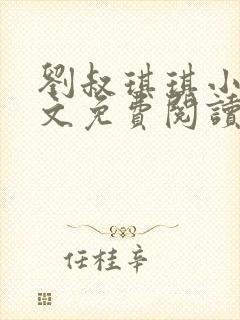 劉叔琪琪小
文免費閱讀
任桂辛